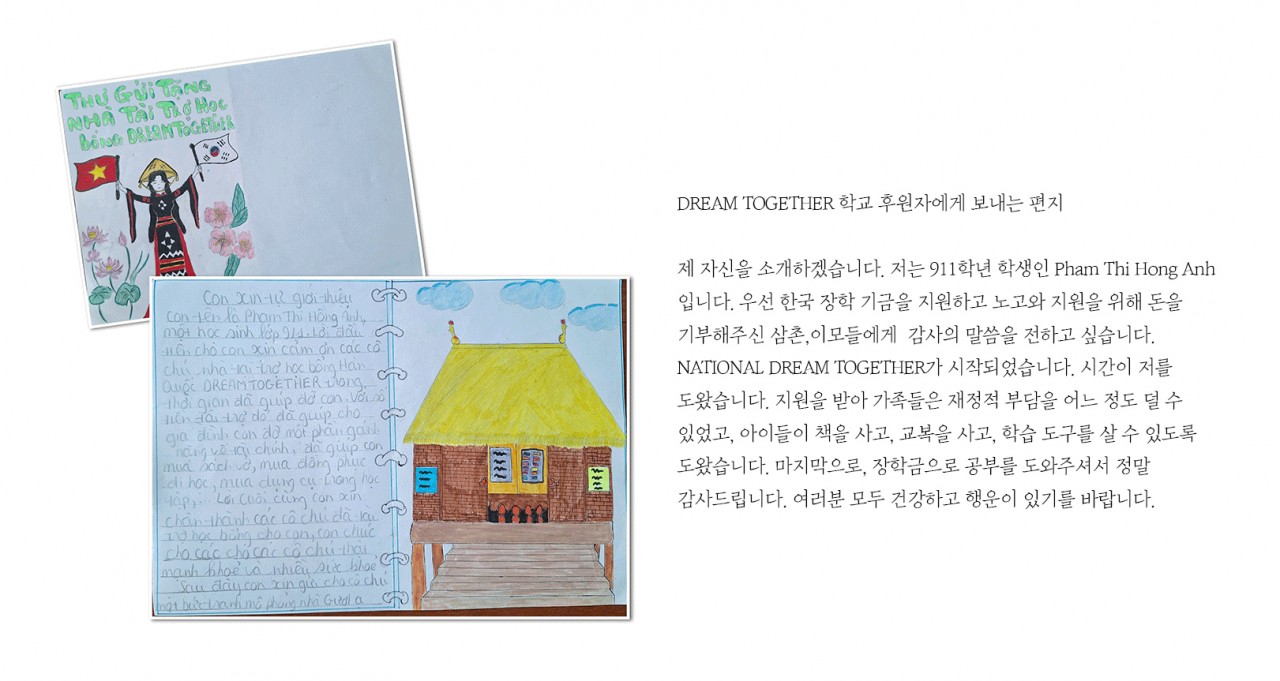 THƯ GỬI TẶNG
NHÀ TÀI TRỢ HỌC
BỔNG DREAM TOGETHER
Con xin tự giới thiệu
con tên là Phạm Thị Hồng Ánh
một học sinh lớp 9/1. Lời đầu
tiên cho con xin cảm ơn các cô
chú nhà tài trợ học bổng Hàn
Quốc DREAM TOGETHER trong
thời gian đã giúp đỡ con. Với số
tiền tài trợ đó đã giúp cho
gia đình con đỡ một phần gánh
nặng về tài chính, đã giúp con
mua sách vở, mua đồng phục
đi học, mua dụng cụ trong học
tập,... Lời cuối cùng con xin
chân thành các cô chú đã tài
trợ học bổng cho con, con chúc
cho các cho các cô chú thật
mạnh khoẻ và nhiều sức khoẻ
Sau đây con xin gửi cho cô chú
một bức tranh mô phỏng nhà Gươl ạ
DREAM TOGETHER 학교 후원자에게 보내는 편지
제 자신을 소개하겠습니다. 저는 911학년 학생인 Pham Thi Hong Anh
입니다. 우선 한국 장학 기금을 지원하고 노고와 지원을 위해 돈을
기부해주신 삼촌,이모들에게 감사의 말씀을 전하고 싶습니다.
NATIONAL DREAM TOGETHER가 시작되었습니다. 시간이 저를
도왔습니다. 지원을 받아 가족들은 재정적 부담을 어느 정도 덜 수
있었고, 아이들이 책을 사고, 교복을 사고, 학습 도구를 살 수 있도록
도왔습니다. 마지막으로, 장학금으로 공부를 도와주셔서 정말
감사드립니다. 여러분 모두 건강하고 행운이 있기를 바랍니다.